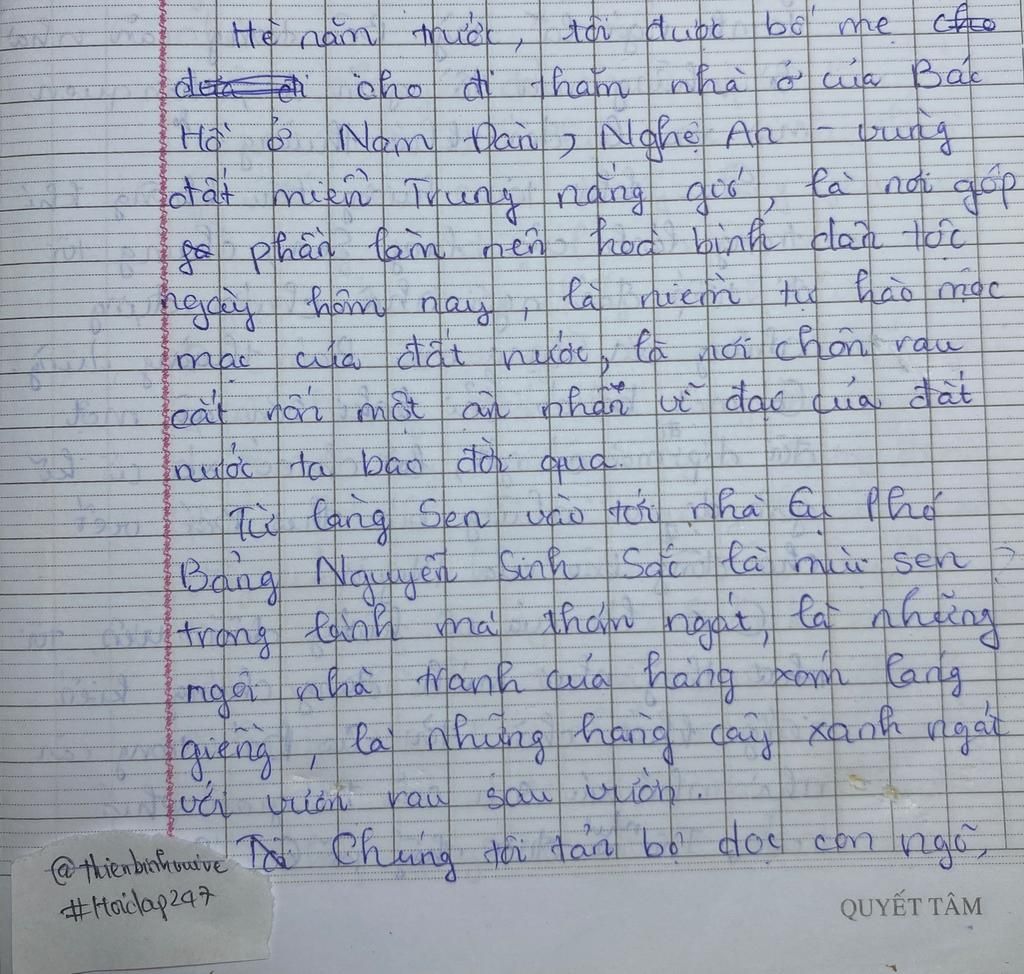 Hè năm trước, tôi được bố mẹ cho
cho đi thăm nhà ở của Bác
Hồ ở Nam Đàn, Nghệ An - vùng
đất miền Trung nắng gió, là nơi góp
phần làm nên hoà bình dân tộc
ngày hôm nay, là niềm tự hào mộc
mạc của đất nước, là nơi chôn rau
cắt rốn một ân nhân vĩ đạo của đất
nước ta bao đời qua.
Từ làng Sen vào tới nhà cụ Phó
Bảng Nguyễn Sinh Sắc là mùi sen
trong lành mà thơm ngát, là những
ngôi nhà tranh của hàng xóm láng
giềng, là những hàng cây xanh ngát
với vườn rau sau vườn.
Chúng tôi tản bộ dọc con ngõ,
@thienbinhvuive
#Hoidap247
QUYẾT TÂM